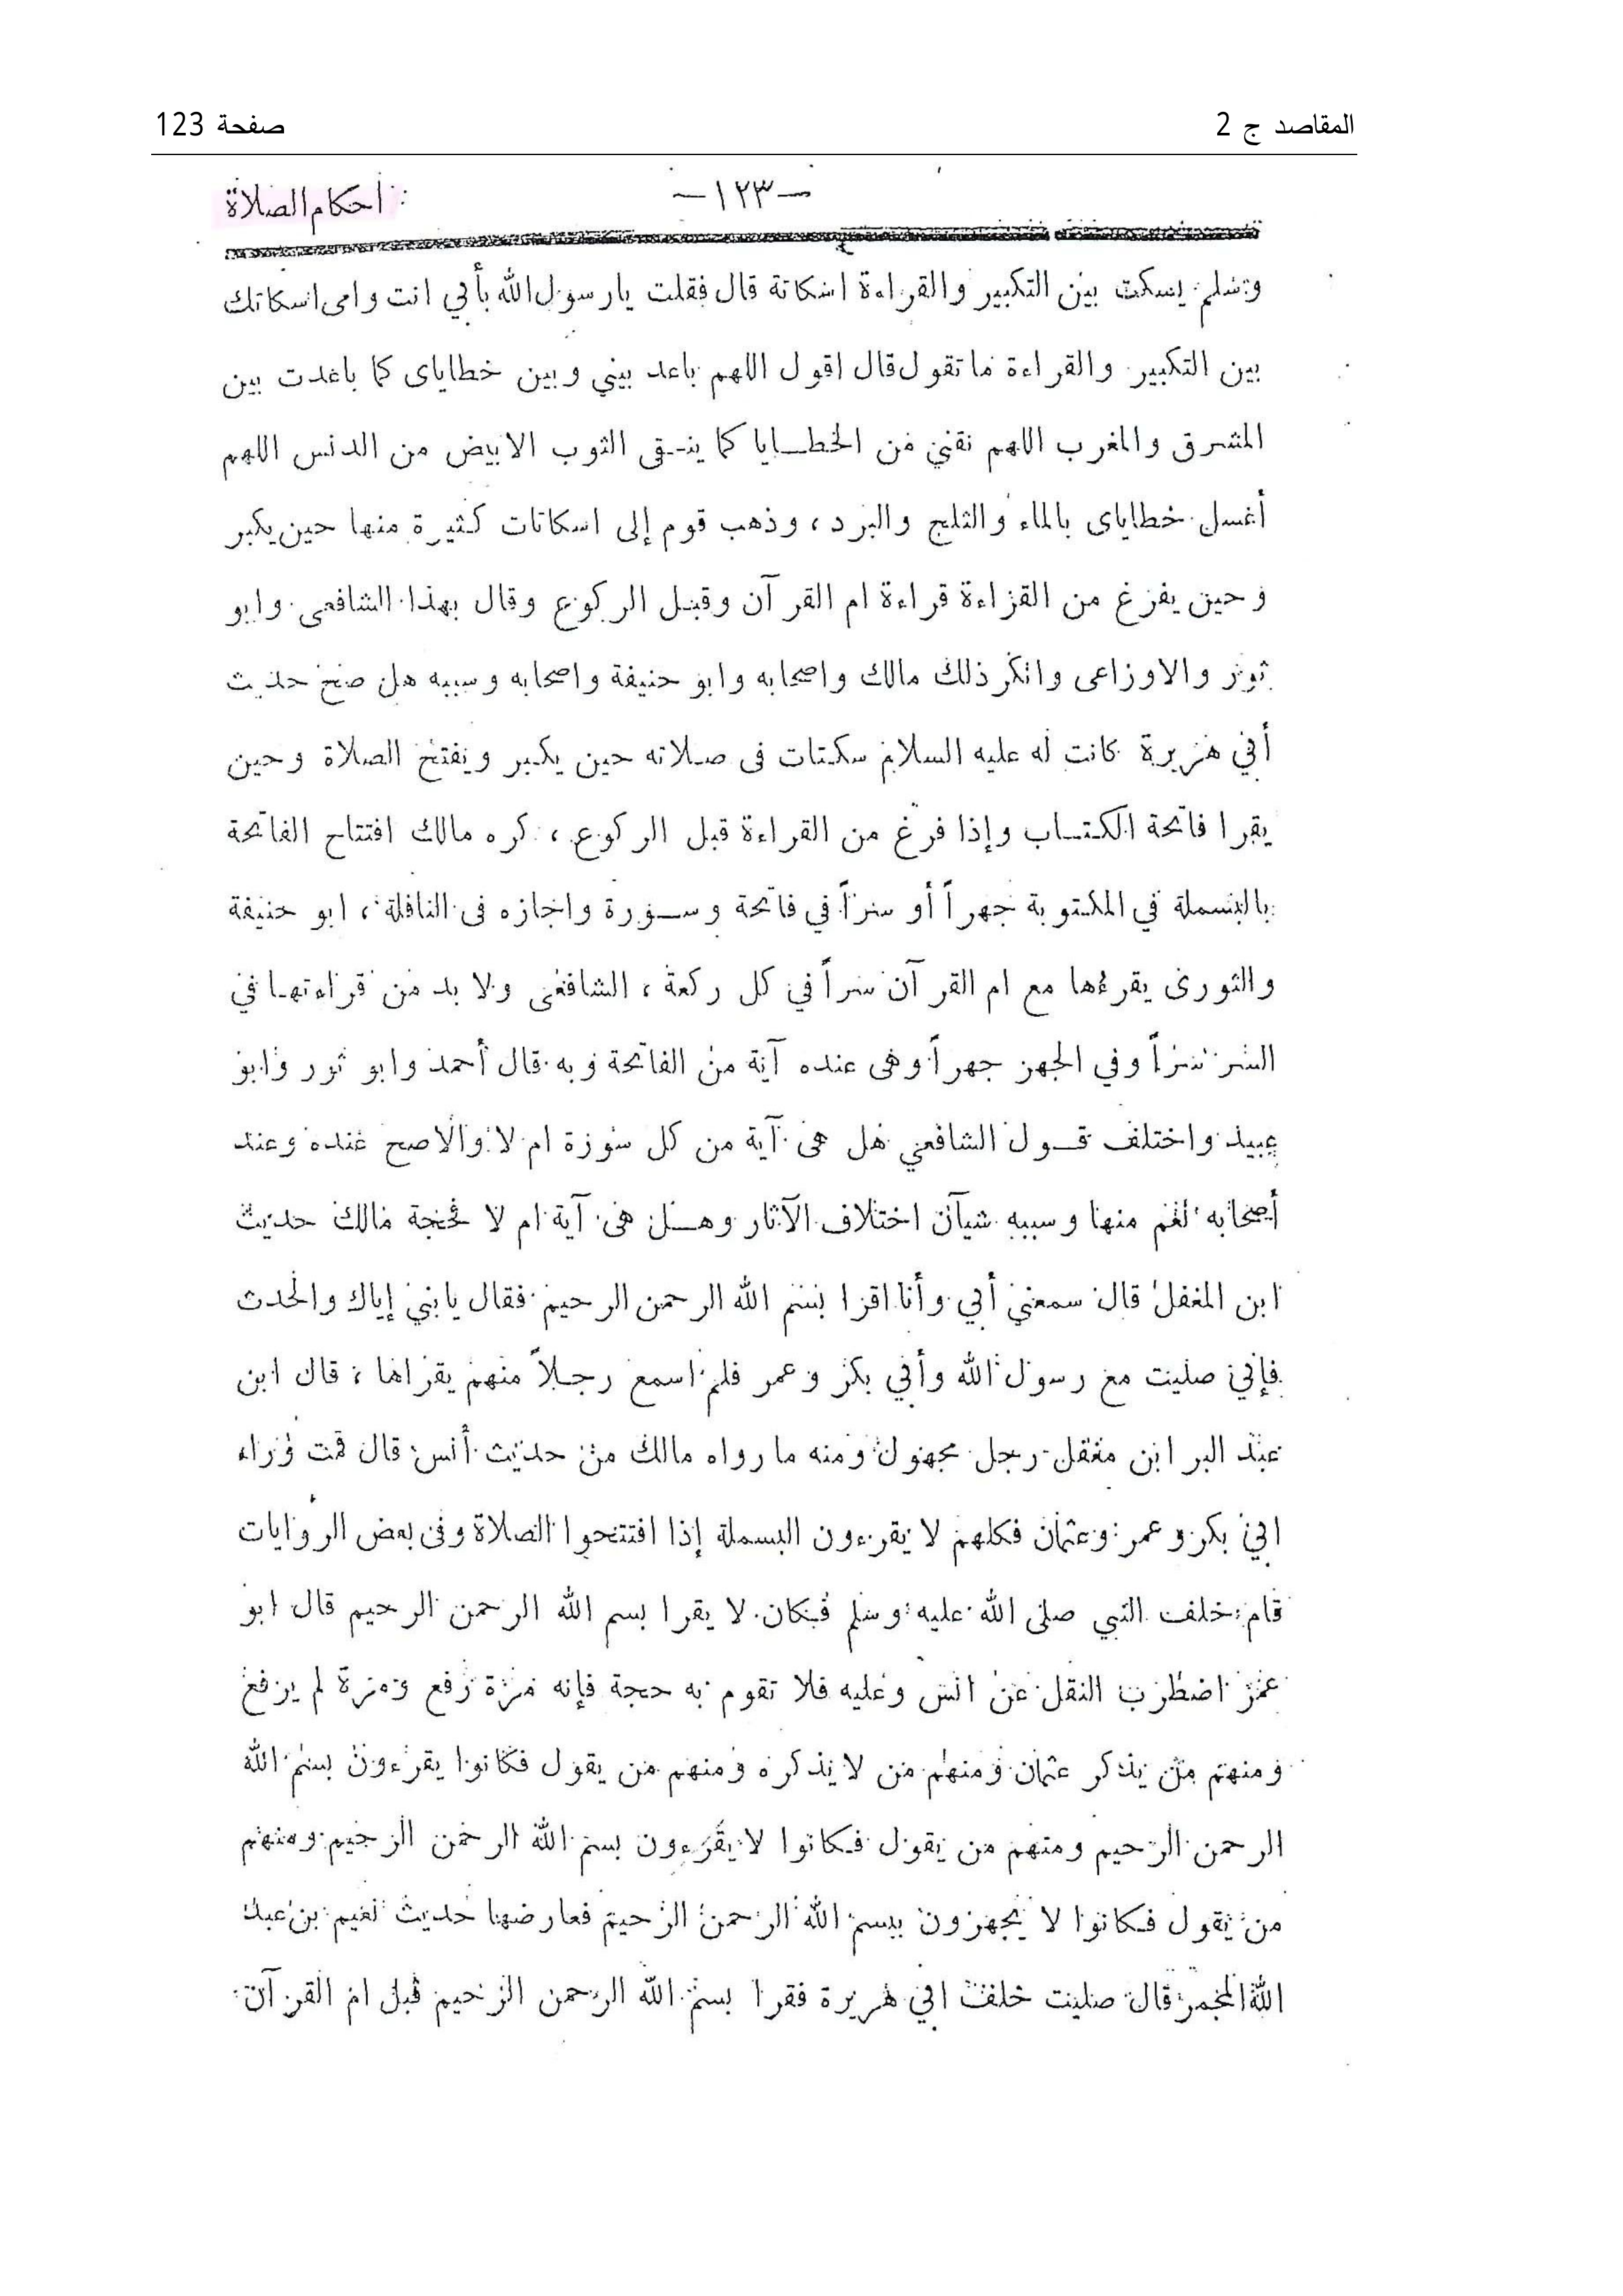 المقاصد ج 2
صفحة 123
احكام الصلاة
—١٢٣—
وسلم يسكت بين التكبير والقراءة اسكاتة قال فقلت يارسول الله بأبي انت وامى اسكاتك
بين التكبير والقراءة ما تقول قال اقول اللهم باعد بيني وبين خطاياى كما باعدت بين
المشرق والمغرب اللهم نقني من الخطايا كما ينقى الثوب الابيض من الدنس اللهم
أغسل خطاياى بالماء والثلج والبرد ، وذهب قوم إلى اسكاتات كثيرة منها حين يكبر
وحين يفرغ من القراءة قراءة ام القرآن وقبل الركوع وقال بهذا الشافعى وابو
ثور والاوزاعى وانكر ذلك مالك واصحابه وابو حنيفة واصحابه وسببه هل صح حديث
أبي هريرة كانت له عليه السلام سكتات فى صلاته حين يكبر ويفتتح الصلاة وحين
يقرا فاتحة الكتاب وإذا فرغ من القراءة قبل الركوع ، كره مالك افتتاح الفاتحة
بالبسملة في المكتوبة جهراً أو سراً في فاتحة وسورة واجازه فى النافلة ، ابو حنيفة
والثورى يقرءها مع ام القرآن سراً في كل ركعة ، الشافعى ولا بد من قراءتها في
السر سراً وفي الجهر جهراً وهى عنده آية من الفاتحة وبه قال أحمد وابو ثور وابو
عبيد واختلف قول الشافعي هل هى آية من كل سورة ام لا والاصح عنده وعند
أصحابه نعم منها وسببه شيآن اختلاف الآثار وهل هى آية ام لا فحجة مالك حديث
ابن المغفل قال سمعني أبي وأنا اقرا بسم الله الرحمن الرحيم فقال يابني إياك والحدث
فإني صليت مع رسول الله وأبي بكر وعمر فلم اسمع رجلاً منهم يقراها ، قال ابن
عبد البر ابن مغفل رجل مجهول ومنه ما رواه مالك من حديث أنس قال قمت وراء
ابي بكر وعمر وعثمان فكلهم لا يقرءون البسملة إذا افتتحوا الصلاة وفى بعض الروايات
قام خلف النبي صلى الله عليه وسلم فكان لا يقرا بسم الله الرحمن الرحيم قال ابو
عمر اضطرب النقل عن انس وعليه فلا تقوم به حجة فإنه مرة رفع ومرة لم يرفع
ومنهم من يذكر عثمان ومنهم من لا يذكره ومنهم من يقول فكانوا يقرءون بسم الله
الرحمن الرحيم ومنهم من يقول فكانوا لا يقرءون بسم الله الرحمن الرحيم ومنهم
من يقول فكانوا لا يجهرون ببسم الله الرحمن الرحيم فعارضها حديث نعيم بن عبد
الله المجمر قال صليت خلف ابي هريرة فقرا بسم الله الرحمن الرحيم قبل ام القرآن